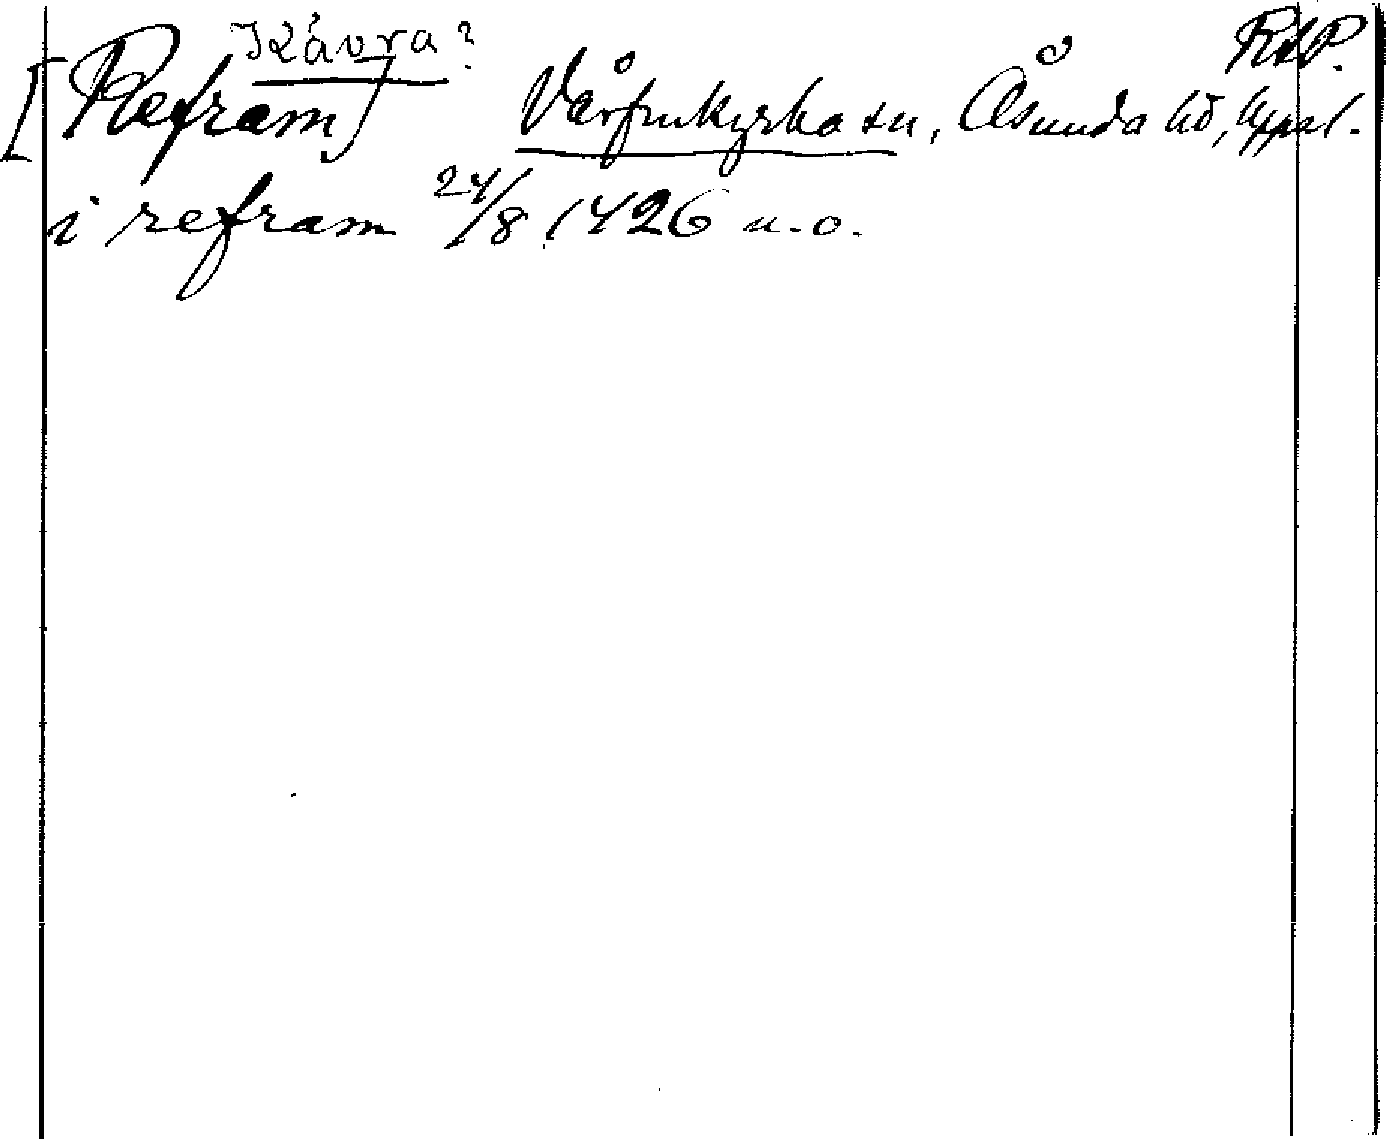 Rävra? RAP.
[Refram] Vårfrukyrka sn, Åsunda hd, Uppl.
i refram 24/8 1426 u.o.